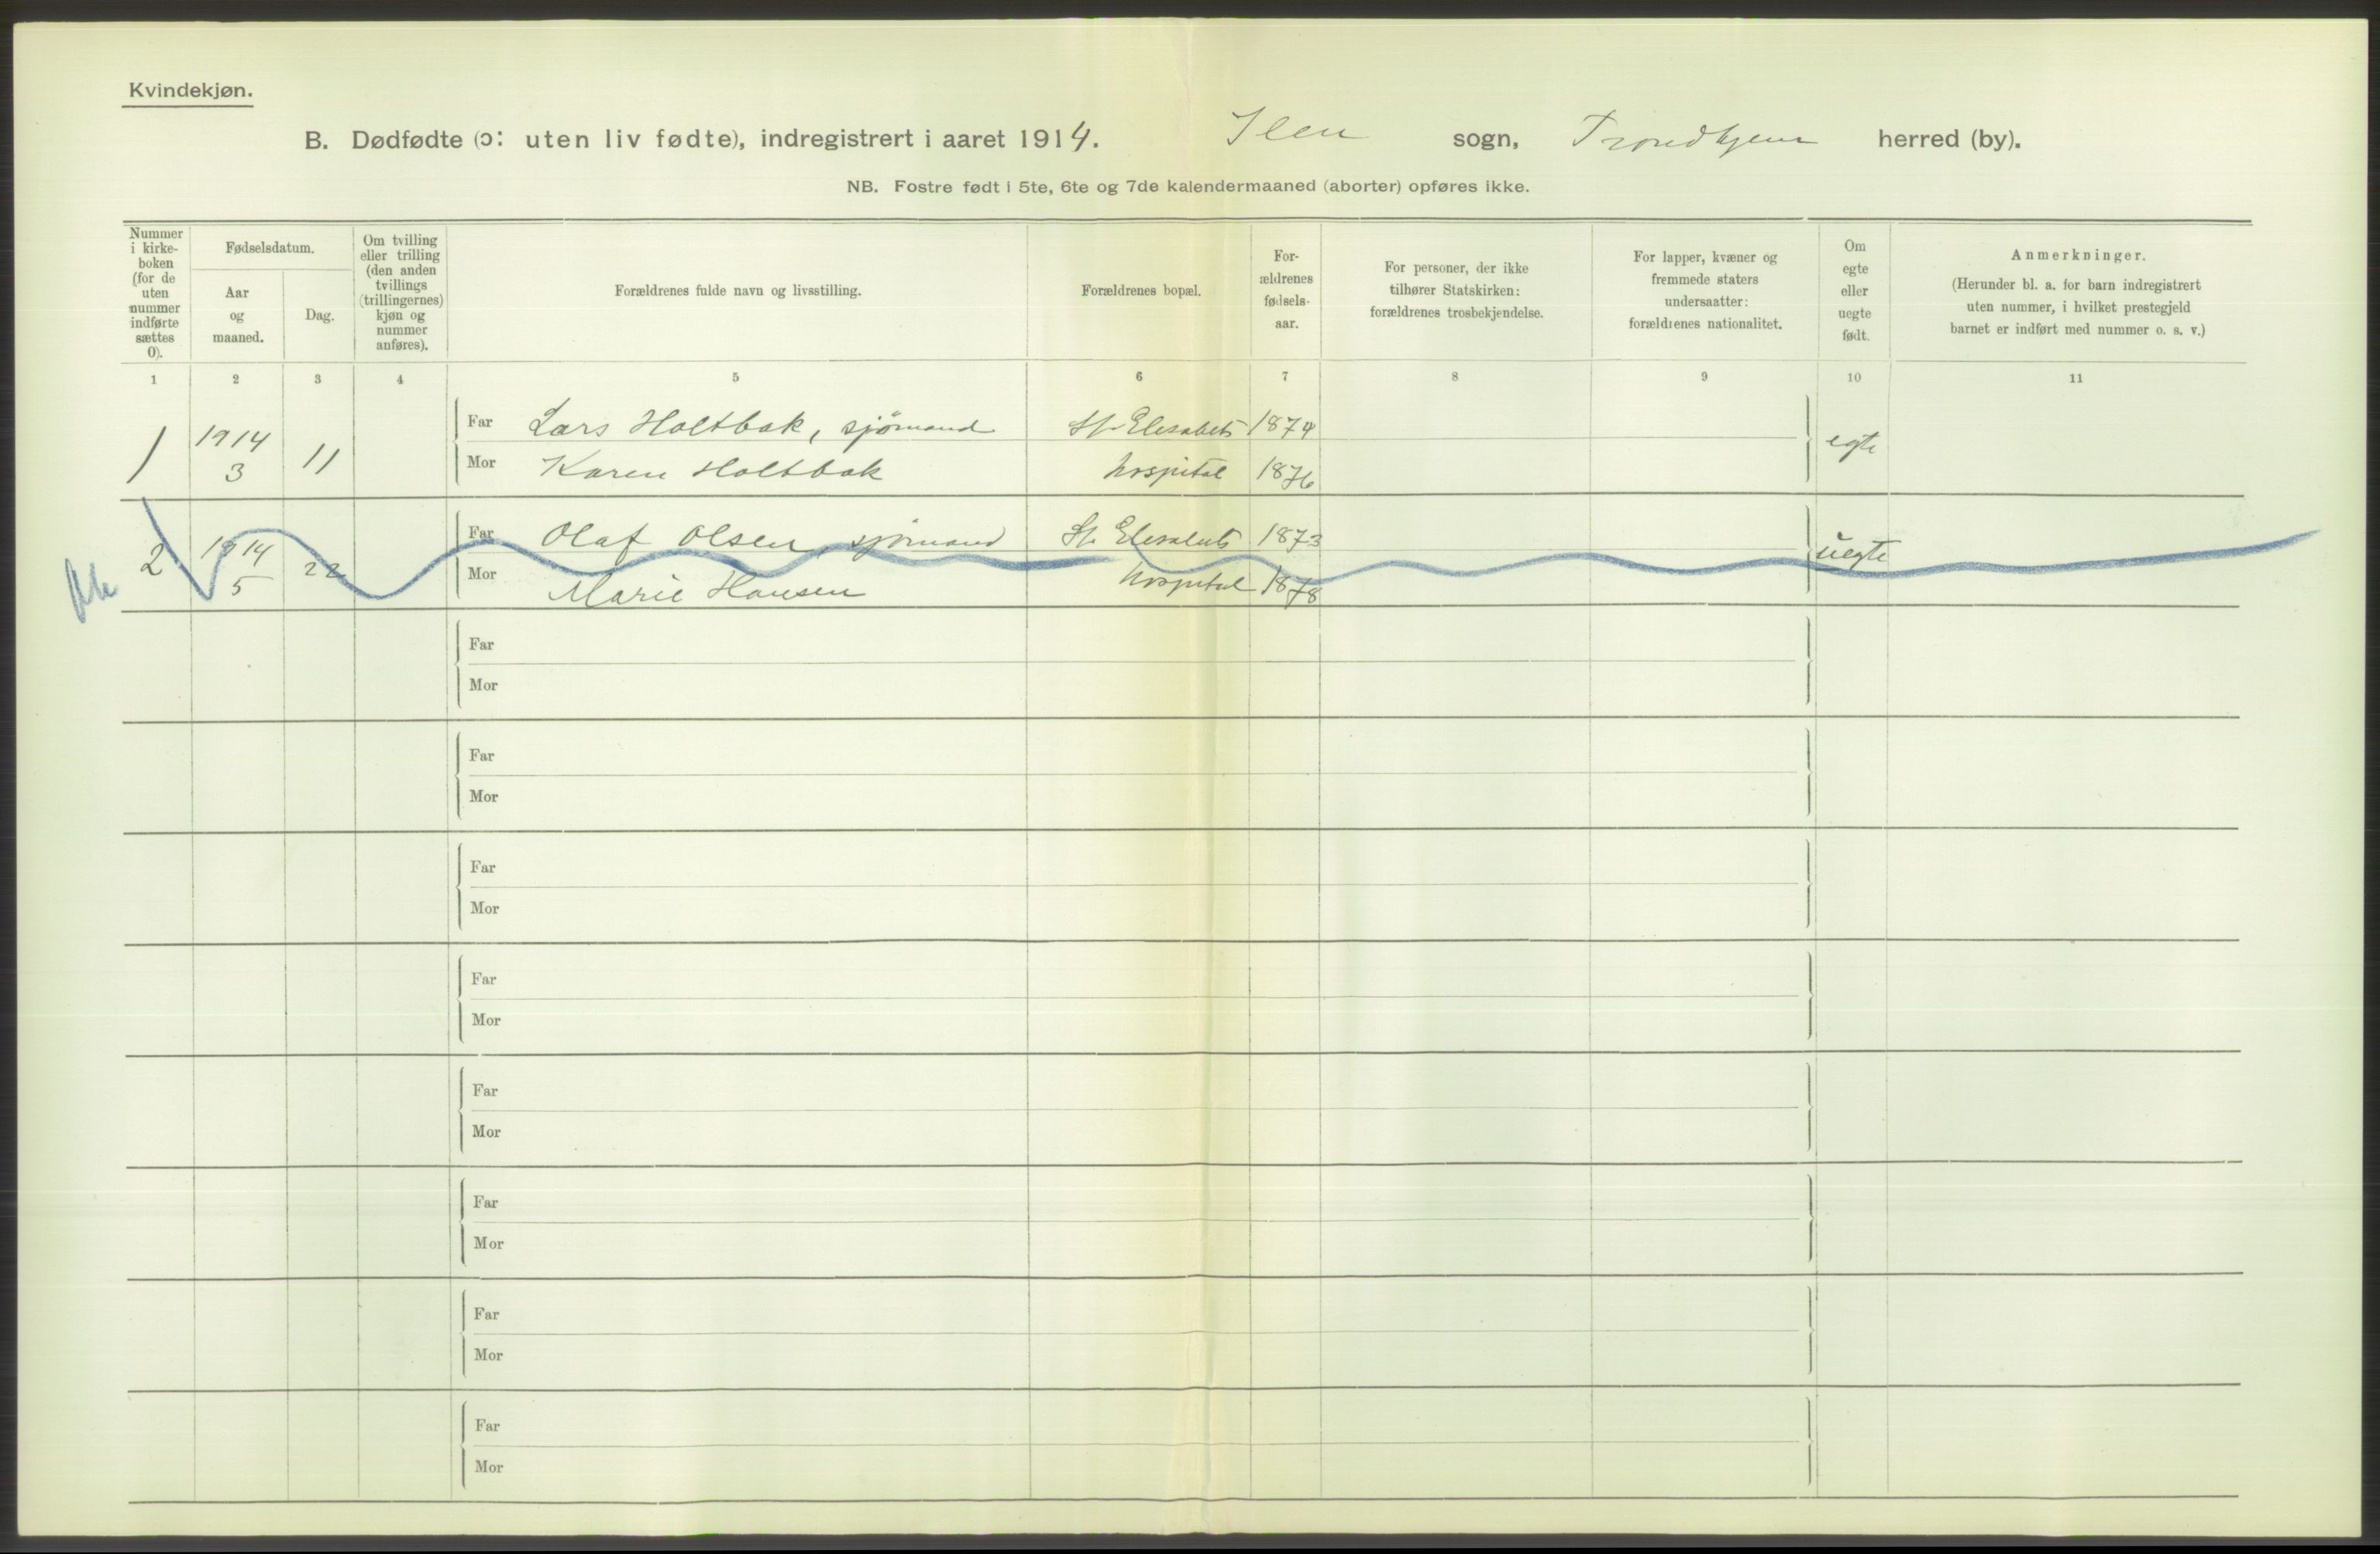 Kvindekjøn.
B. Dødfødte (ɔ: uten liv fødte), indregistrert i aaret 1914. Ilen sogn, Trondhjem herred (by).
NB. Fostre født i 5te, 6te og 7de kalendermaaned (aborter) opføres ikke.
Nummer
i kirke-
boken
(for de
uten
nummer
indførte
sættes
0).
Fødselsdatum.
Aar
og
maaned.
Dag.
Om tvilling
eller trilling
(den anden
tvillings
(trillingernes)
kjøn og
nummer
anføres).
Forældrenes fulde navn og livsstilling.
Forældrenes bopæl.
For-
ældrenes
fødsels-
aar.
For personer, der ikke
tilhører Statskirken:
forældrenes trosbekjendelse.
For lapper, kvæner og
fremmede staters
undersaatter:
forældrenes nationalitet.
Om
egte
eller
uegte
født.
Anmerkninger.
(Herunder bl. a. for barn indregistrert
uten nummer, i hvilket prestegjeld
barnet er indført med nummer o. s. v.)
1 2 3 4 5 6 7 8 9 10 11
1 1914 3 11
Far Lars Holtbak, sjømand St. Elisabets 1874 egte
Mor Karen Holtbak hospital 1876
2 1914 5 22
Far Olaf Olsen, sjømand St. Elisabets 1873 uegte
Mor Marie Hansen hospital 1878
Far
Mor
Far
Mor
Far
Mor
Far
Mor
Far
Mor
Far
Mor
Far
Mor
Far
Mor